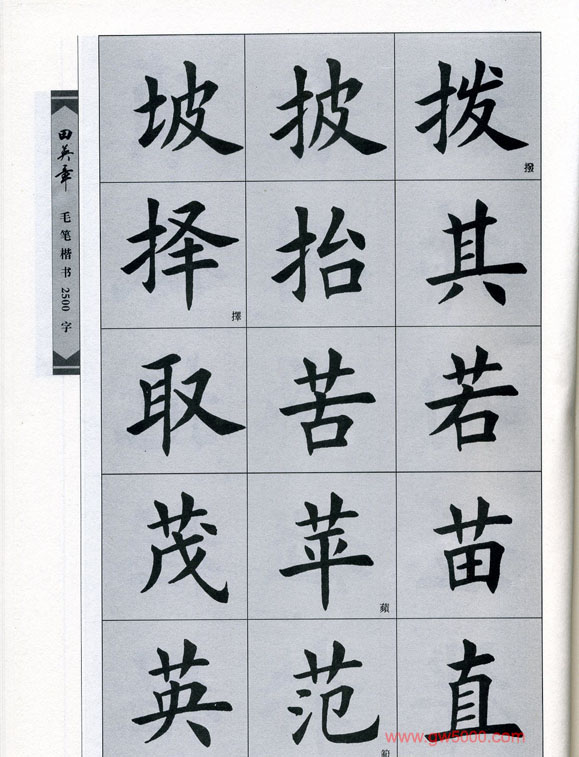 田英章
毛笔楷书2500字
坡披拨
撥
择抬其
擇
取苦若
茂苹苗
蘋
英范直
範
www.gw5000.com